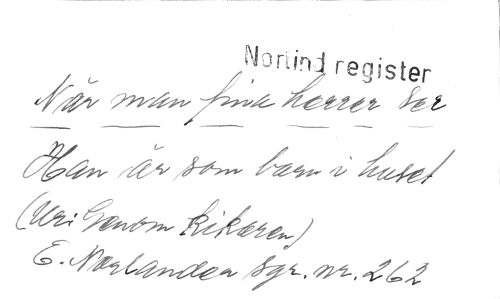 Norlind register
När man fina herrar ser
Han är som barn i huset
(Ur: Genom kikaren)
E. Norlander Sgr. nr. 262